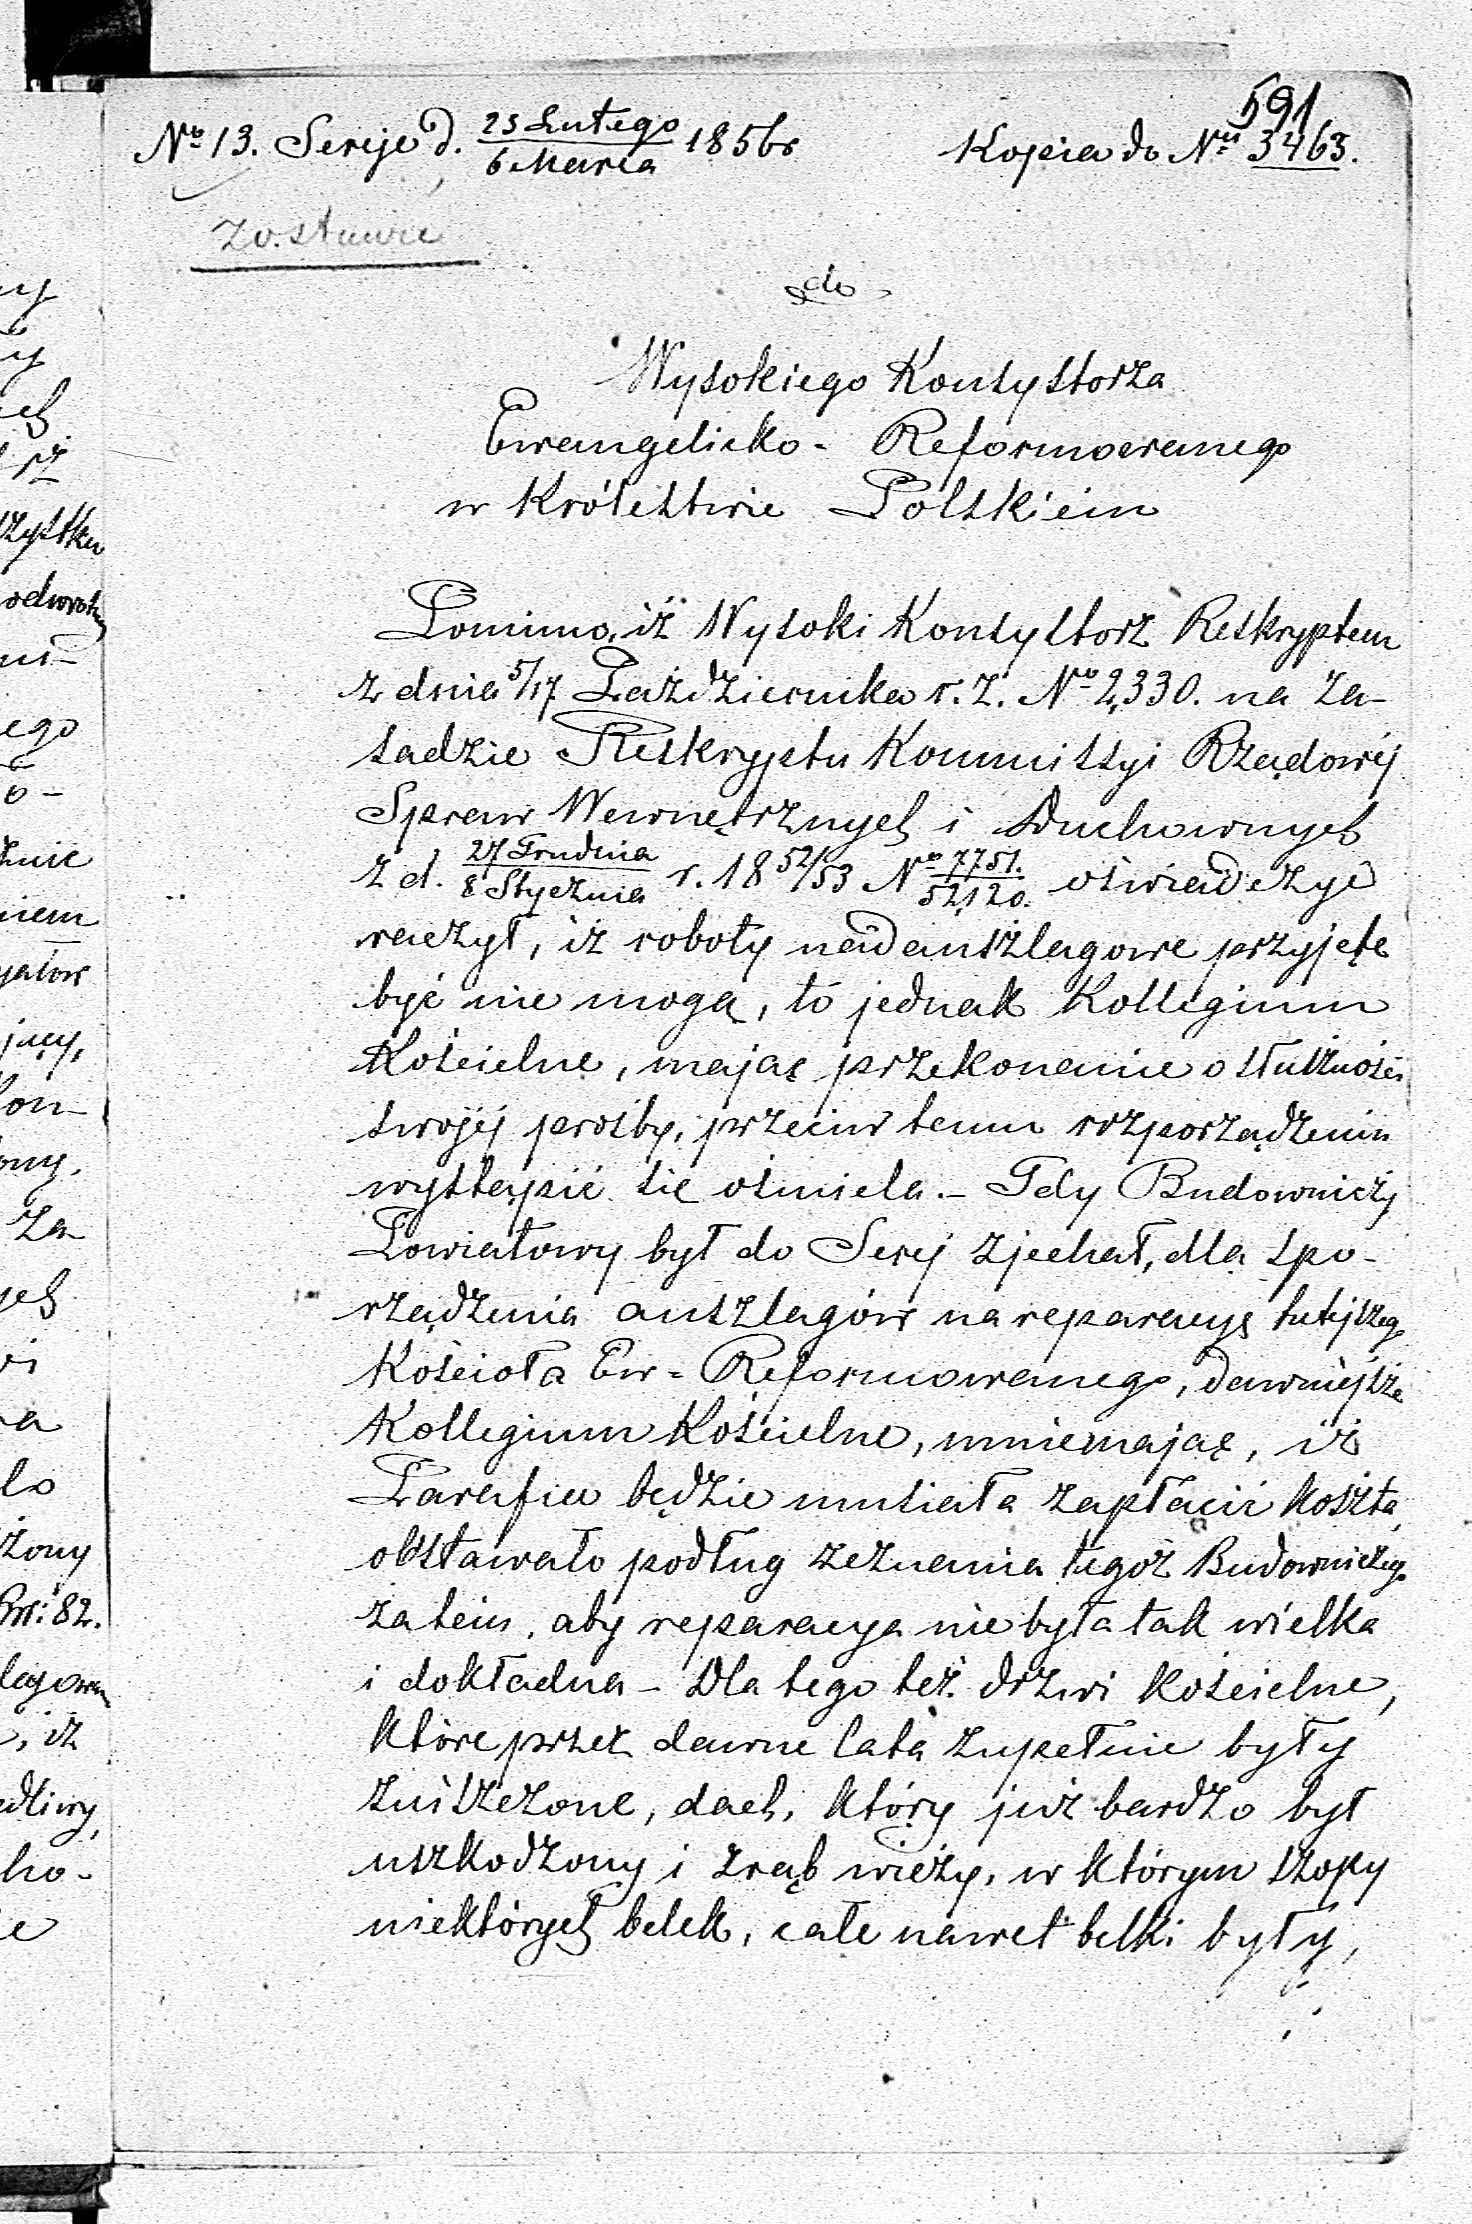 591
No 13. Sereje d. 25 Lutego / 6 Marca 1856 r
Kopia do No 3463.
zostawić
do
Wysokiego Konsystorza
Ewangelicko - Reformowanego
w Królestwie Polskiem
Pomimo, iż Wysoki Konsystorz Reskryptem
z dnia 5/17 Października r. z. No 2,330. na za-
sadzie Reskryptu Kommissyi Rządowéj
Spraw Wewnętrznych i Duchownych
z d. 27 Grudnia / 8 Stycznia r. 18 52/53 No 7751. / 52,120. oświadczyć
raczył, iż roboty nadanszlagowe przyjęte
być nie mogą, to jednak Kollegium
Kościelne, mając przekonanie o słuszności
swojéj prośby, przeciw temu rozporządzeniu
wystąpić się ośmiela. - Gdy Budowniczy
Powiatowy był do Serej zjechał, dla spo-
rządzenia anszlagów na reparacyę tutejszego
Kościoła Ew - Reformowanego, dawniejsze
Kollegium Kościelne, mniemając, iż
Parafia będzie musiała zapłacić koszta,
obstawało podług zeznania tegoż Budowniczego
zatem, aby reparacya nie była tak wielka
i dokładna - Dla tego też drzwi kościelne,
które przez dawne lata zupełnie były
zniszczone, dach, który już bardzo był
uszkodzony i zrąb wieży, w którym czopy
niektórych belek, całe nawet belki były,